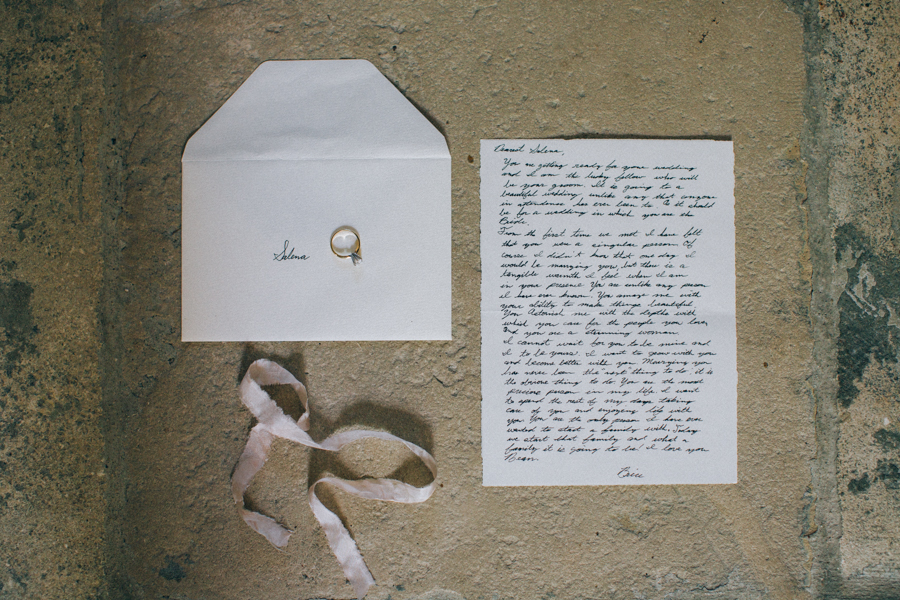 Selena
Dearest Selena,
You are getting ready for your wedding
and I am the lucky fellow who will
be your groom. It is going to a
beautiful wedding, unlike any that anyone
in attendance has ever been to. As it should
be for a wedding in which you are the
Bride.
From the first time we met I have felt
that you were a singular person. Of
course I didn't know that one day I
would be marrying you, but there is a
tangible warmth I feel when I am
in your presence. You are unlike any person
I have ever known. You amaze me with
your ability to make things beautiful.
You Astonish me with the depths with
which you care for the people you love,
And you are a stunning woman.
I cannot wait for you to be mine and
I to be yours. I want to grow with you
and become better with you. Marrying you
has never been the next thing to do, it is
the thing to do. You are the most
precious person in my life. I want
to spend the rest of my days taking
care of you and enjoying life with
you. You are the only person I have ever
wanted to start a family with. Today
we start that family and what a
family it is going to be! I love you
Bean.